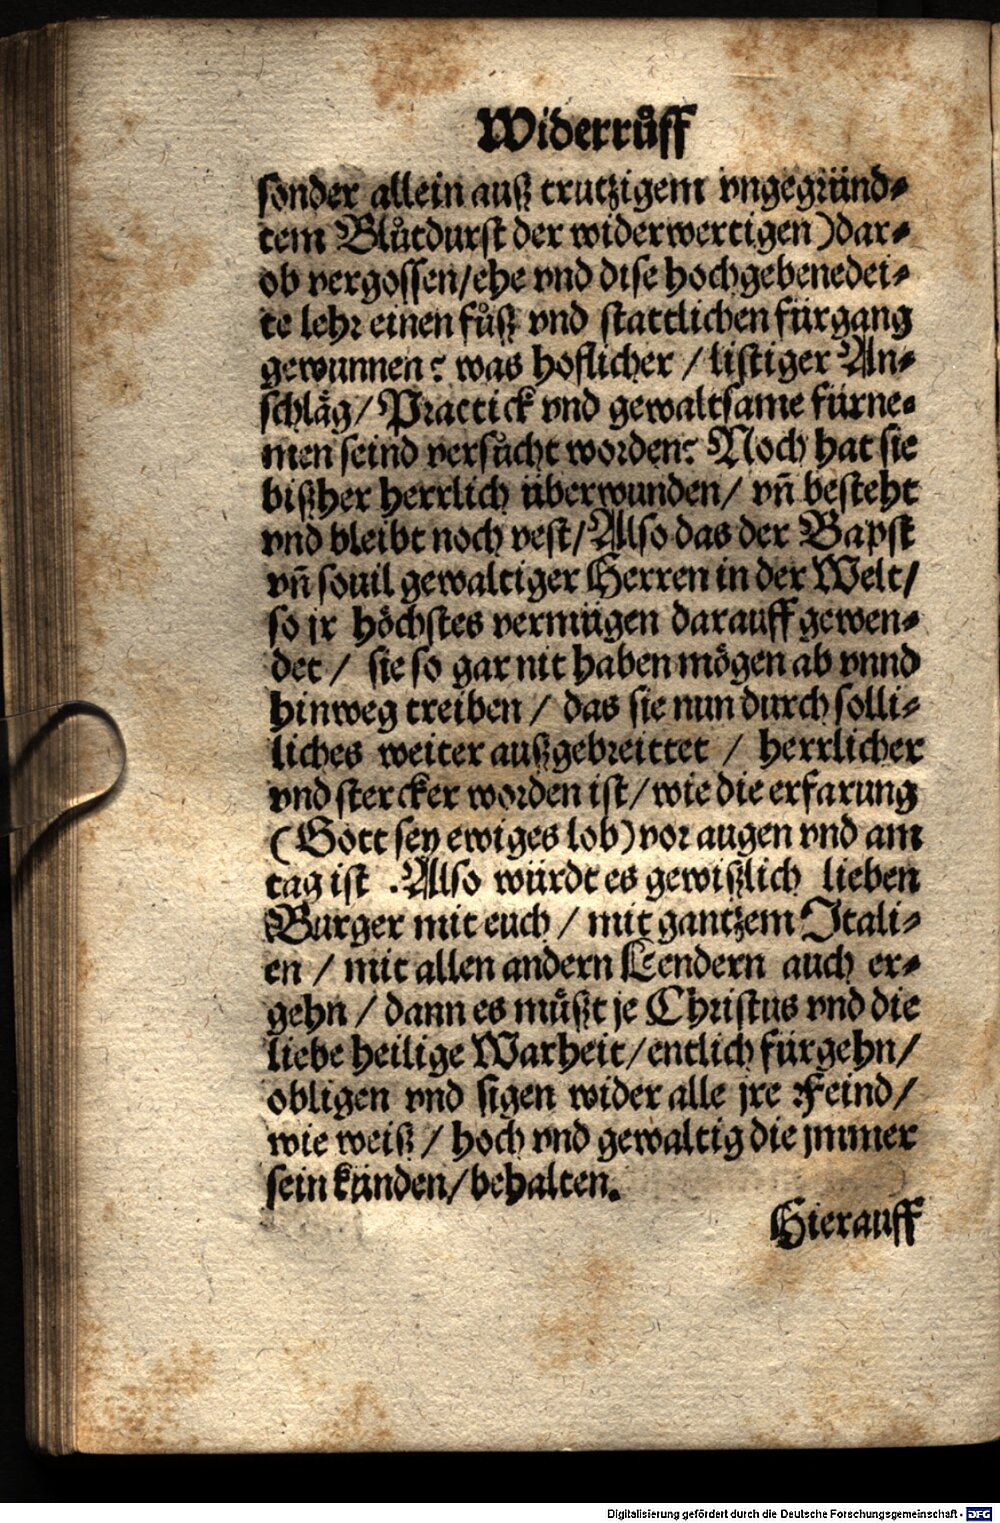 Widerrůff
sonder allein auß trutzigem vngegründ-
tem Blůtdurst der widerwertigen) dar-
ob vergossen/ehe vnd dise hochgebenedei-
te lehr einen fůß vnd stattlichen fürgang
gewunnen? was hoflicher / listiger An-
schläg/ Practick vnd gewaltsame fürne-
men seind versůcht worden? Noch hat sie
bißher herrlich überwunden/ vñ besteht
vnd bleibt noch vest/ Also das der Bapst
vñ souil gewaltiger Herren in der Welt/
so jr höchstes vermügen darauff gewen-
det / sie so gar nit haben mögen ab vnnd
hinweg treiben / das sie nun durch solli-
liches weiter außgebreittet / herrlicher
vnd stercker worden ist/ wie die erfarung
(Gott sey ewiges lob) vor augen vnd am
tag ist . Also würdt es gewißlich lieben
Burger mit euch / mit gantzem Itali-
en / mit allen andern Lendern auch er-
gehn / dann es müßt je Christus vnd die
liebe heilige Warheit/ entlich fürgehn/
obligen vnd sigen wider alle jre Feind/
wie weiß / hoch vnd gewaltig die jmmer
sein künden/ behalten.
Hierauff
Digitalisierung gefördert durch die Deutsche Forschungsgemeinschaft - DFG